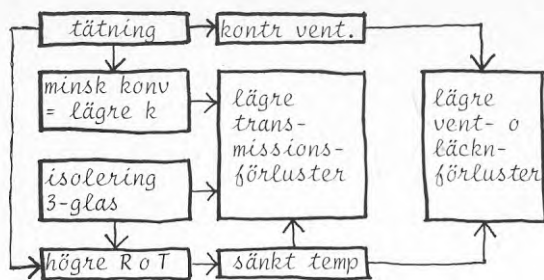 tätning
kontr vent.
minsk konv
= lägre k
lägre
trans-
missions-
förluster
lägre
vent- o
läckn-
förluster
isolering
3-glas
högre R o T
sänkt temp